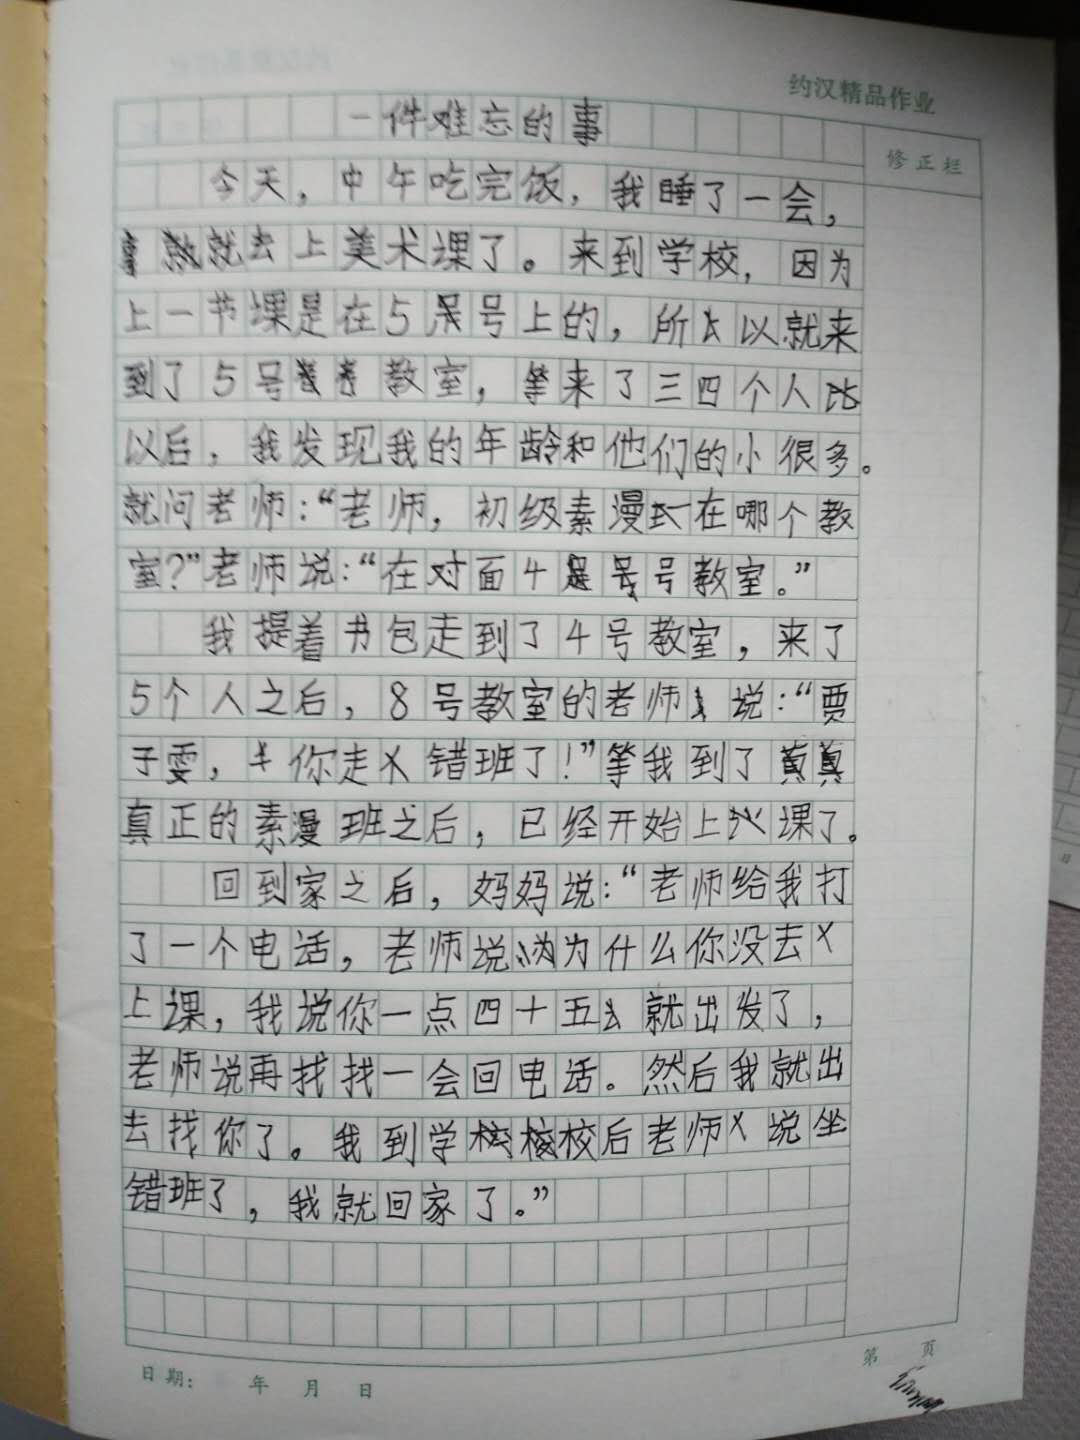 约汉精品作业
修正栏
一件难忘的事
今天，中午吃完饭，我睡了一会，
就去上美术课了。来到学校，因为
上一节课是在5号上的，所以就来
到了5号教室，等来了三四个人
以后，我发现我的年龄和他们的小很多。
就问老师：“老师，初级素漫在哪个教
室？”老师说：“在对面4号教室。”
我提着书包走到了4号教室，来了
5个人之后，8号教室的老师说：“贾
子雯，你走错班了！”等我到了
真正的素漫班之后，已经开始上课了。
回到家之后，妈妈说：“老师给我打
了一个电话，老师说为什么你没去
上课，我说你一点四十五就出发了，
老师说再找找一会回电话。然后我就出
去找你了。我到学校后老师说坐
错班了，我就回家了。”
日期： 年 月 日
第 页